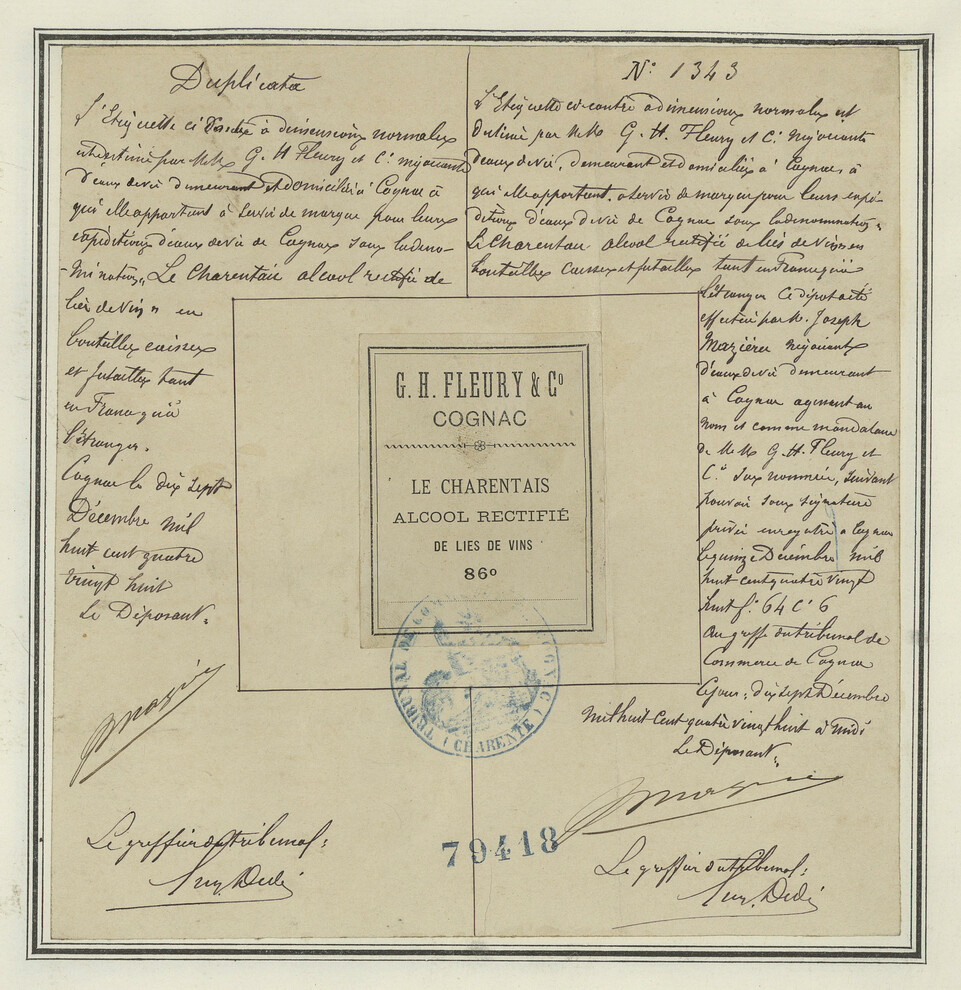 Duplicata
L'Etiquette ci contre à dimensions normales
est destiné par MM. G. H Fleury et Cie négociants
d'eaux de vie demeurant et domiciliés à Cognac à
qui elle appartient à servir de marque pour leurs
expéditions d'eaux de vie de Cognac sous la déno-
-mination „ Le Charentais alcool rectifié de
lies de vin " en
bouteilles caisses
et futailles tant
en France qu'à
l'étranger.
Cognac le dix sept
Décembre mil
huit cent quatre
vingt huit
Le Déposant
Le greffier du tribunal:
N° 1343
L'Etiquette ci contre à dimensions normales est
destiné par MM. G. H. Fleury et Cie négociants
d'eaux de vie, demeurant et domiciliés à Cognac, à
qui elle appartient à servir de marque pour leurs expé-
ditions d'eaux de vie de Cognac sous la dénomination „
Le Charentais alcool rectifié de lies de vins en
bouteilles caisses et futailles tant en France qu'à
l'étranger Ce dépot a été
effectué par M. Joseph
Mazière négociant
d'eaux de vie demeurant
à Cognac agissant au
nom et comme mandataire
de MM. G. H. Fleury et
Cie sus nommés, suivant
pouvoir sous signature
privée enregistré à Cognac
le quinze Décembre mil
huit cent quatre vingt
huit f° 64 C° 6
Au greffe du tribunal de
Commerce de Cognac
Ce jour: dix sept Décembre
mil huit cent quatre vingt huit à midi
Le Déposant
Le greffier du tribunal:
G. H. FLEURY & Co
COGNAC
LE CHARENTAIS
ALCOOL RECTIFIÉ
DE LIES DE VINS
86°
TRIBUNAL DE COGNAC (CHARENTE)
79418